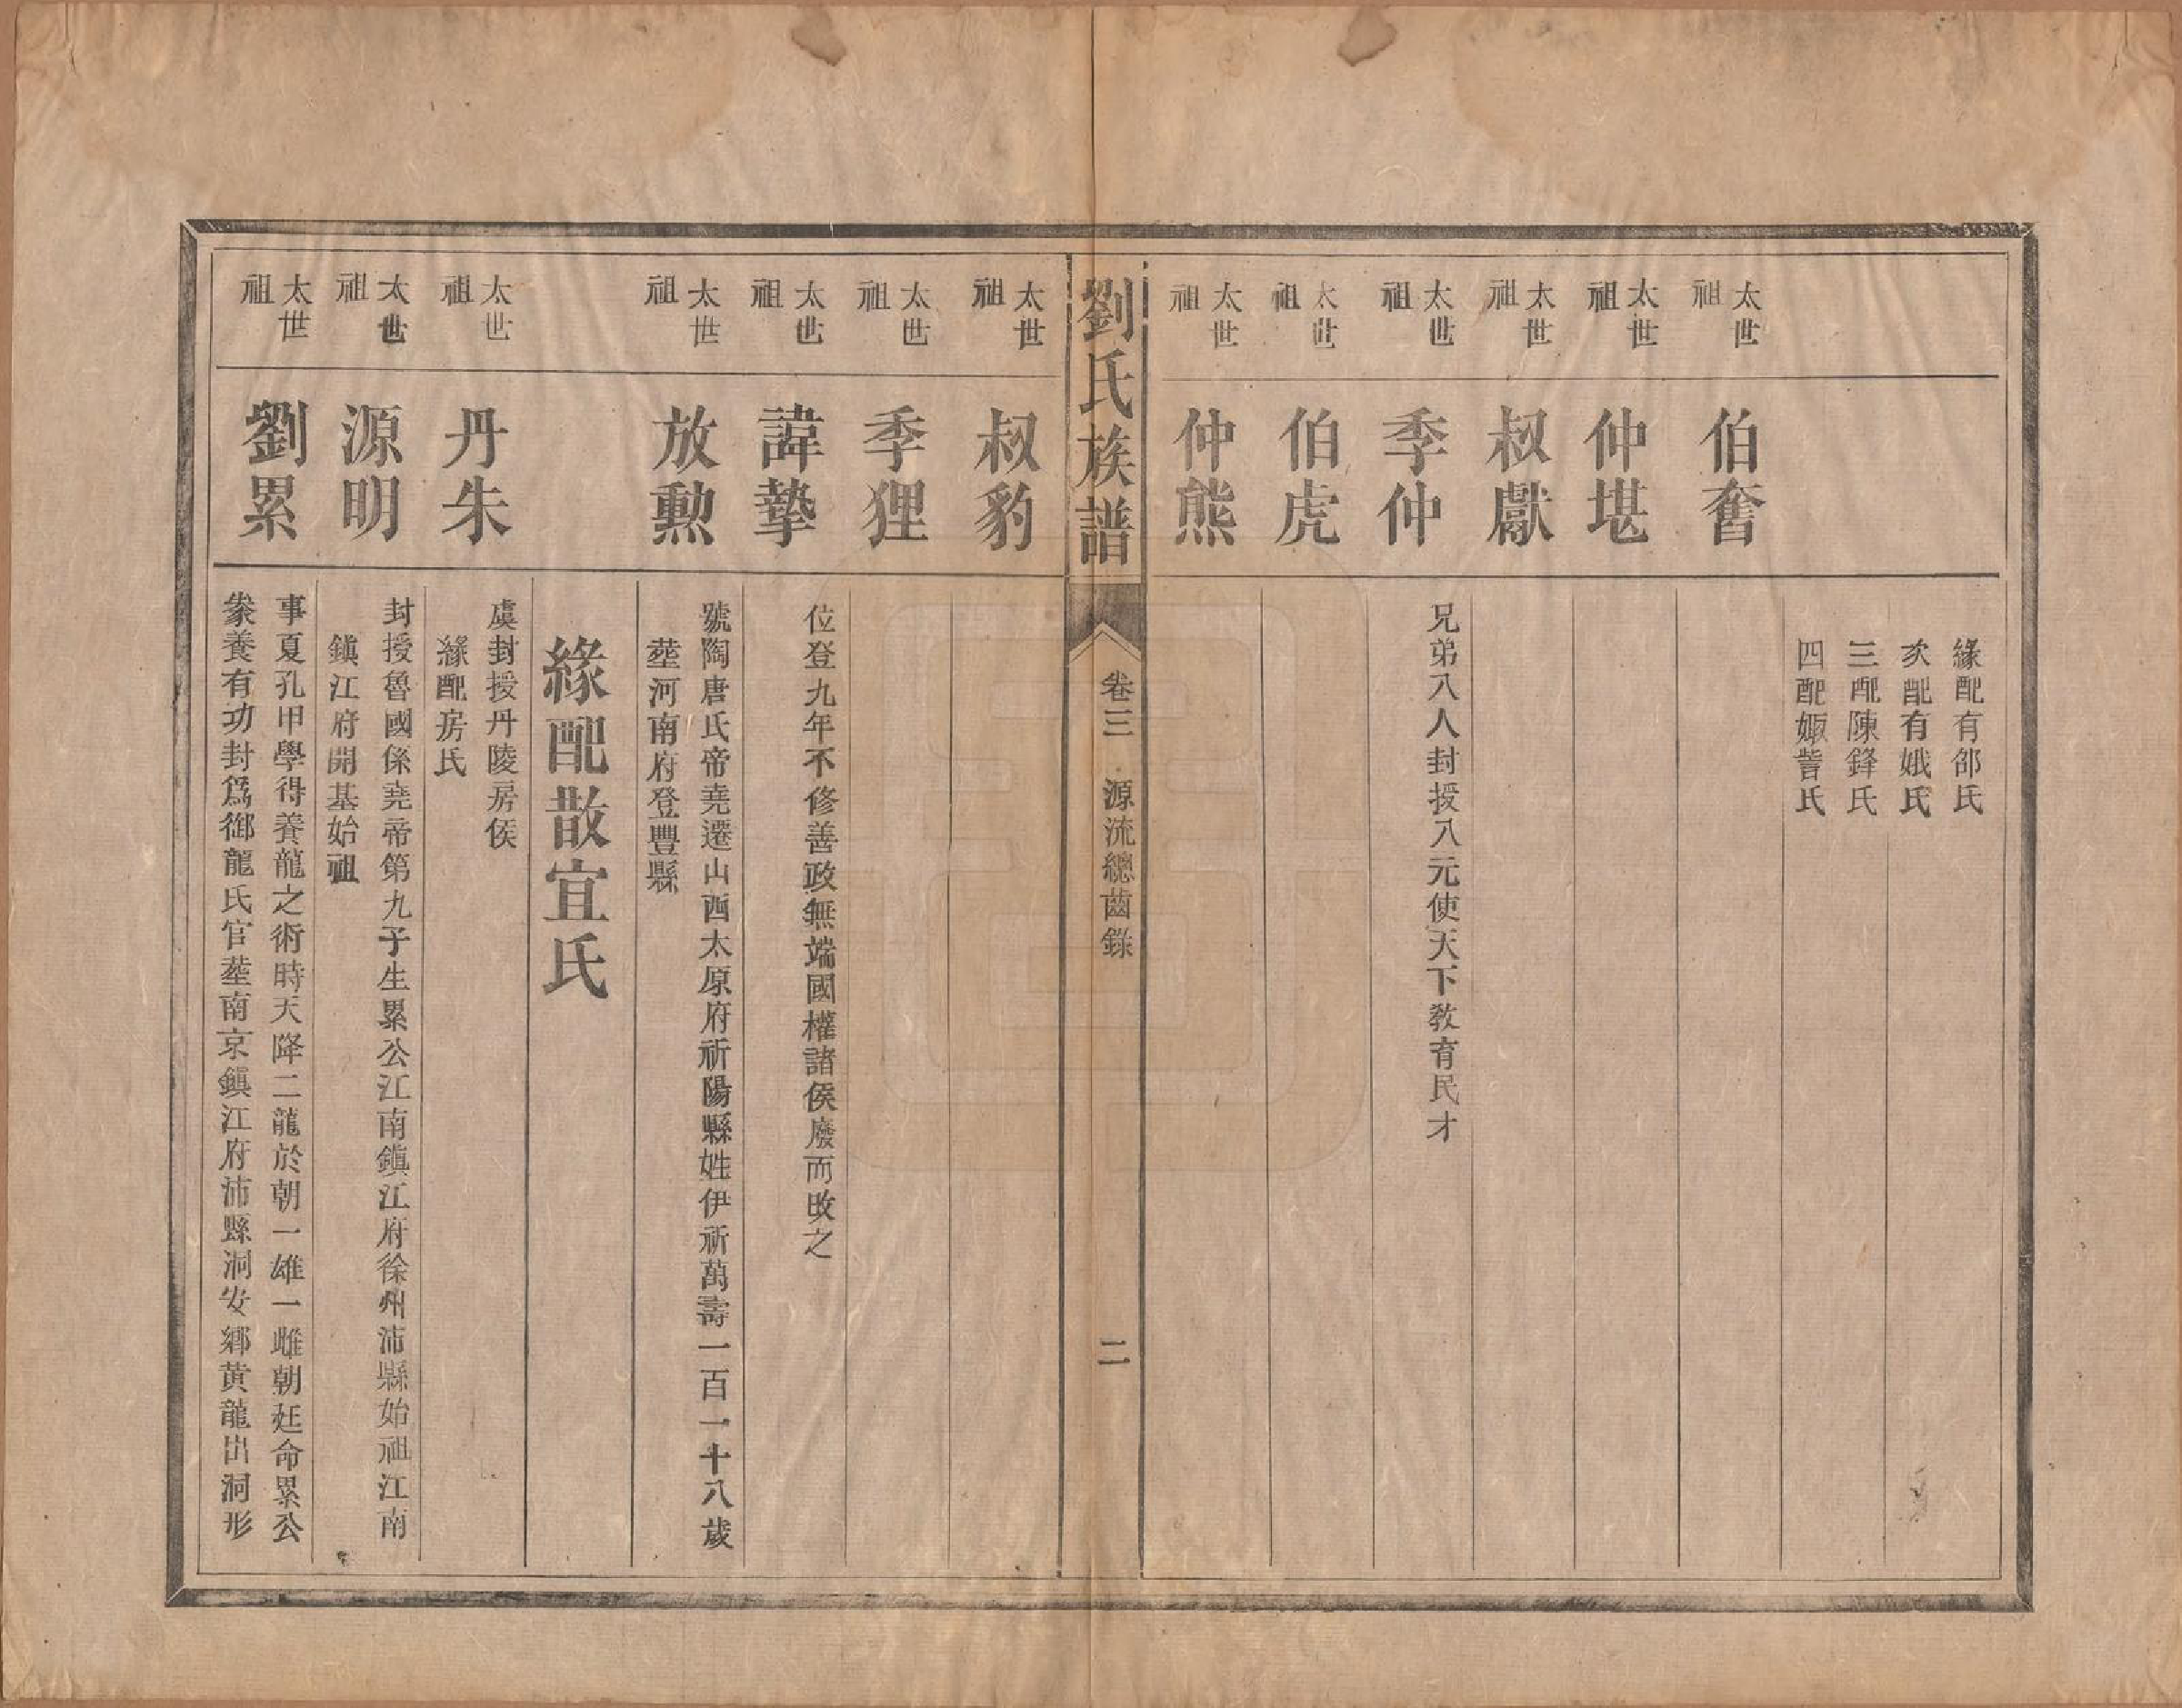 緣配有邰氏
次配有娥氏
三配陳鋒氏
四配娵訾氏
太世祖
伯奮
太世祖
仲堪
太世祖
叔獻
太世祖
季仲
兄弟八人封授八元使天下教育民才
太世祖
伯虎
太世祖
仲熊
劉氏族譜
卷三
源流總齒錄
二
太世祖
叔豹
太世祖
季狸
太世祖
諱摯
位登九年不修善政無端國權諸侯廢而改之
太世祖
放勳
號陶唐氏帝堯遷山西太原府祈陽縣姓伊祈萬壽一百一十八歲
塟河南府登豐縣
緣配散宜氏
太世祖
丹朱
虞封授丹陵房侯
緣配房氏
太世祖
源明
封授魯國係堯帝第九子生累公江南鎮江府徐州沛縣始祖江南
鎮江府開基始祖
太世祖
劉累
事夏孔甲學得養龍之術時天降二龍於朝一雄一雌朝廷命累公
豢養有功封爲御龍氏官塟南京鎮江府沛縣洞安鄉黄龍出洞形